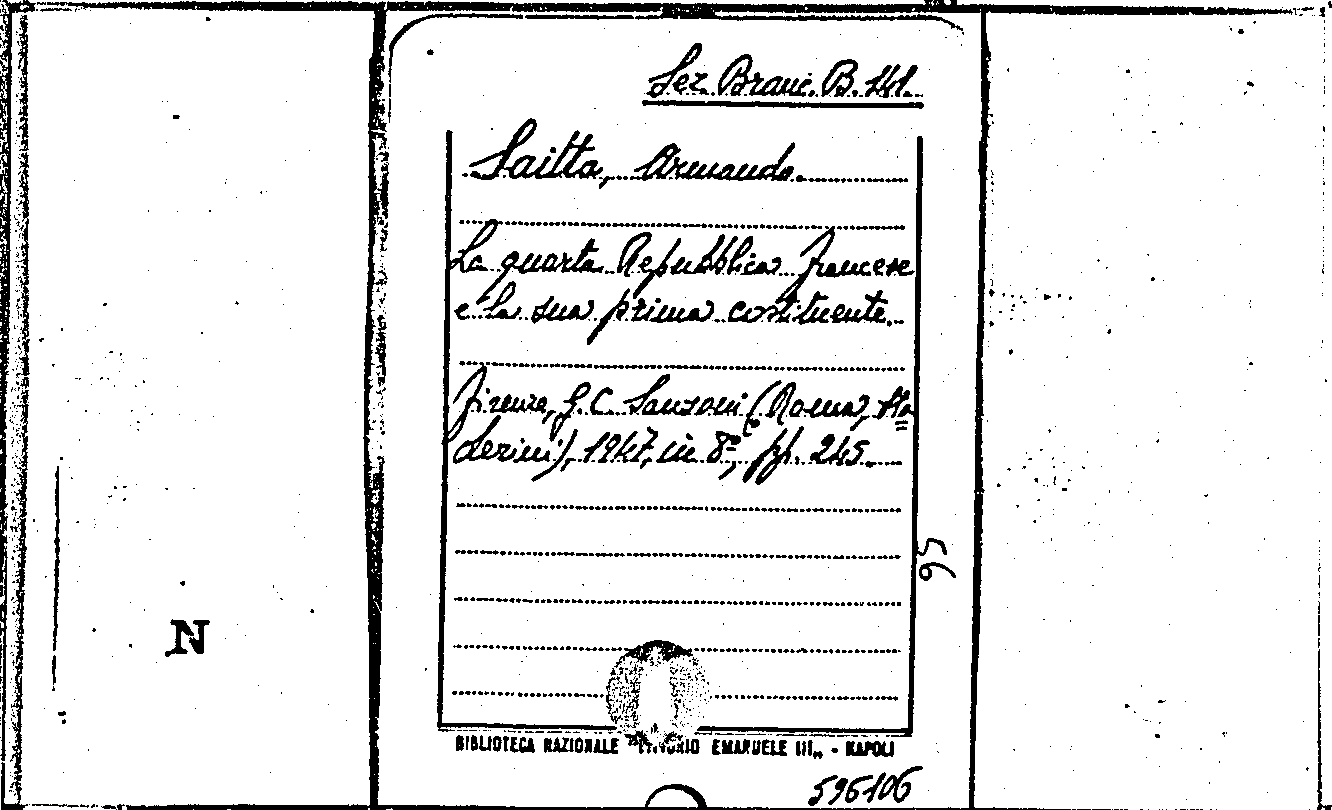 Sez. Branc. B. 141.
Saitta, Armando.
La quarta Repubblica francese
e la sua prima costituente.
Firenze, G. C. Sansoni (Roma, Sta
derini), 1947, in 8º, pp. 245.
95
N
BIBLIOTECA NAZIONALE "VITTORIO EMANUELE III„ - NAPOLI
596106